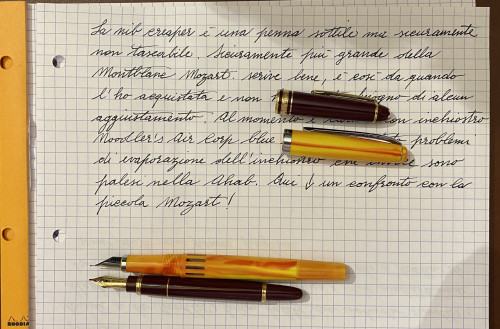 La nib creaper è una penna sottile ma sicuramente
non tascabile. Sicuramente più grande della
Montblanc Mozart. Serve bene, è così da quando
l'ho acquistata e non bisogno di alcun
aggiustamento. Al momento è con inchiostro
Noodler's Air Corp blue problemi
di evaporazione dell'inchiostro che invece sono
palesi nella Ahab. Qui ↓ un confronto con la
piccola Mozart!
RHODIA